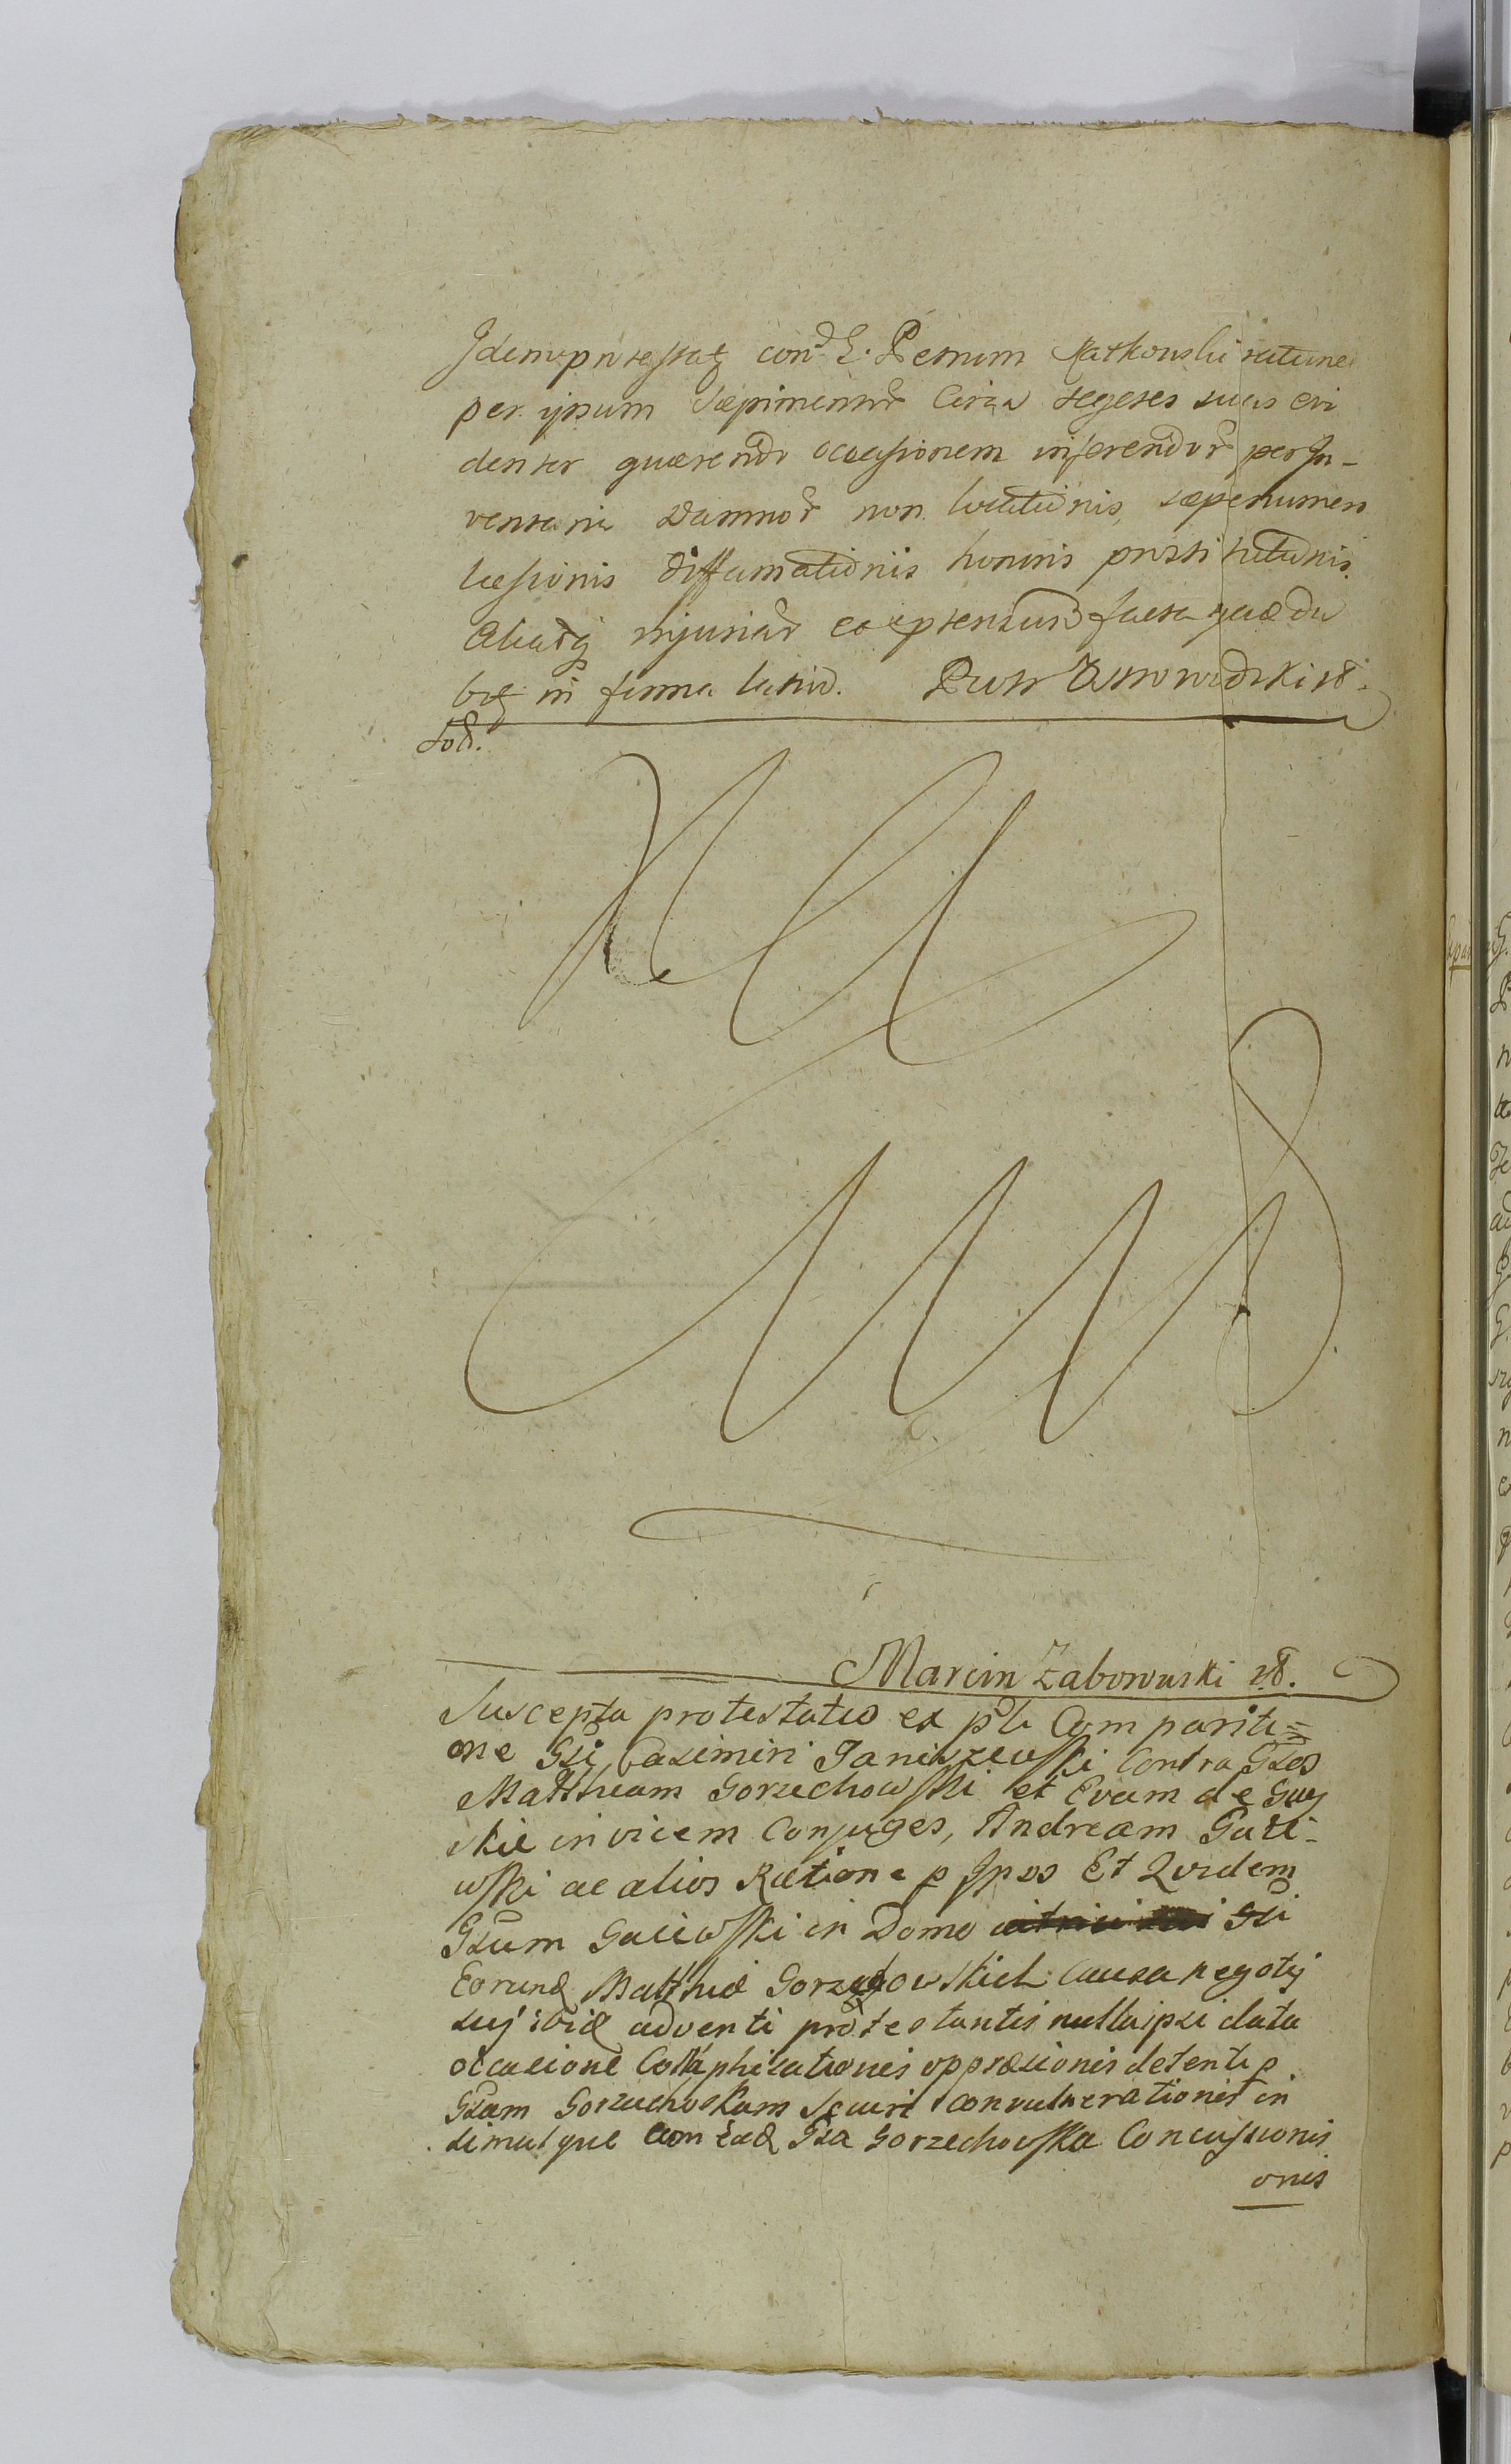 Idem protestatq cond G. Petrum Ratkowski ratione
per ipsum Sæpimentor Circa segetes suas evi
denter quærendo occasionem inferendor per In-
ventaria Damnor non locationis, sæpenumero
læsionis diffamationis honoris prostitutionis.
Aliarq injuriar ex eptentur facta quæ du
brq in forma latiu. Piotr Ostrowodzki vd.
Sod.
Marcin Zaborowski vd.
Suscepta protestatio ex psti Compariti=
one Gsi Casimiri Janiszewski Contra Gsos
Mattheum Gorzechowski et Evam de Guz
skie invicem Conjuges, Andream Guti-
wski ac alios Ratione p Ipsos Et Quidem
Gsum Gaciewski in Domo Gsi
Eorund Matthiæ Gorzechowskich Causa negotij
suj ibid adventi protestantis nulla ipsi data
occasione Collaphisationis oppræsionis detenti p
Gsam Gorzuchoskam Securi convulnerationis in
simulque cum ead Gsa Gorzechowska Concussionis
onis